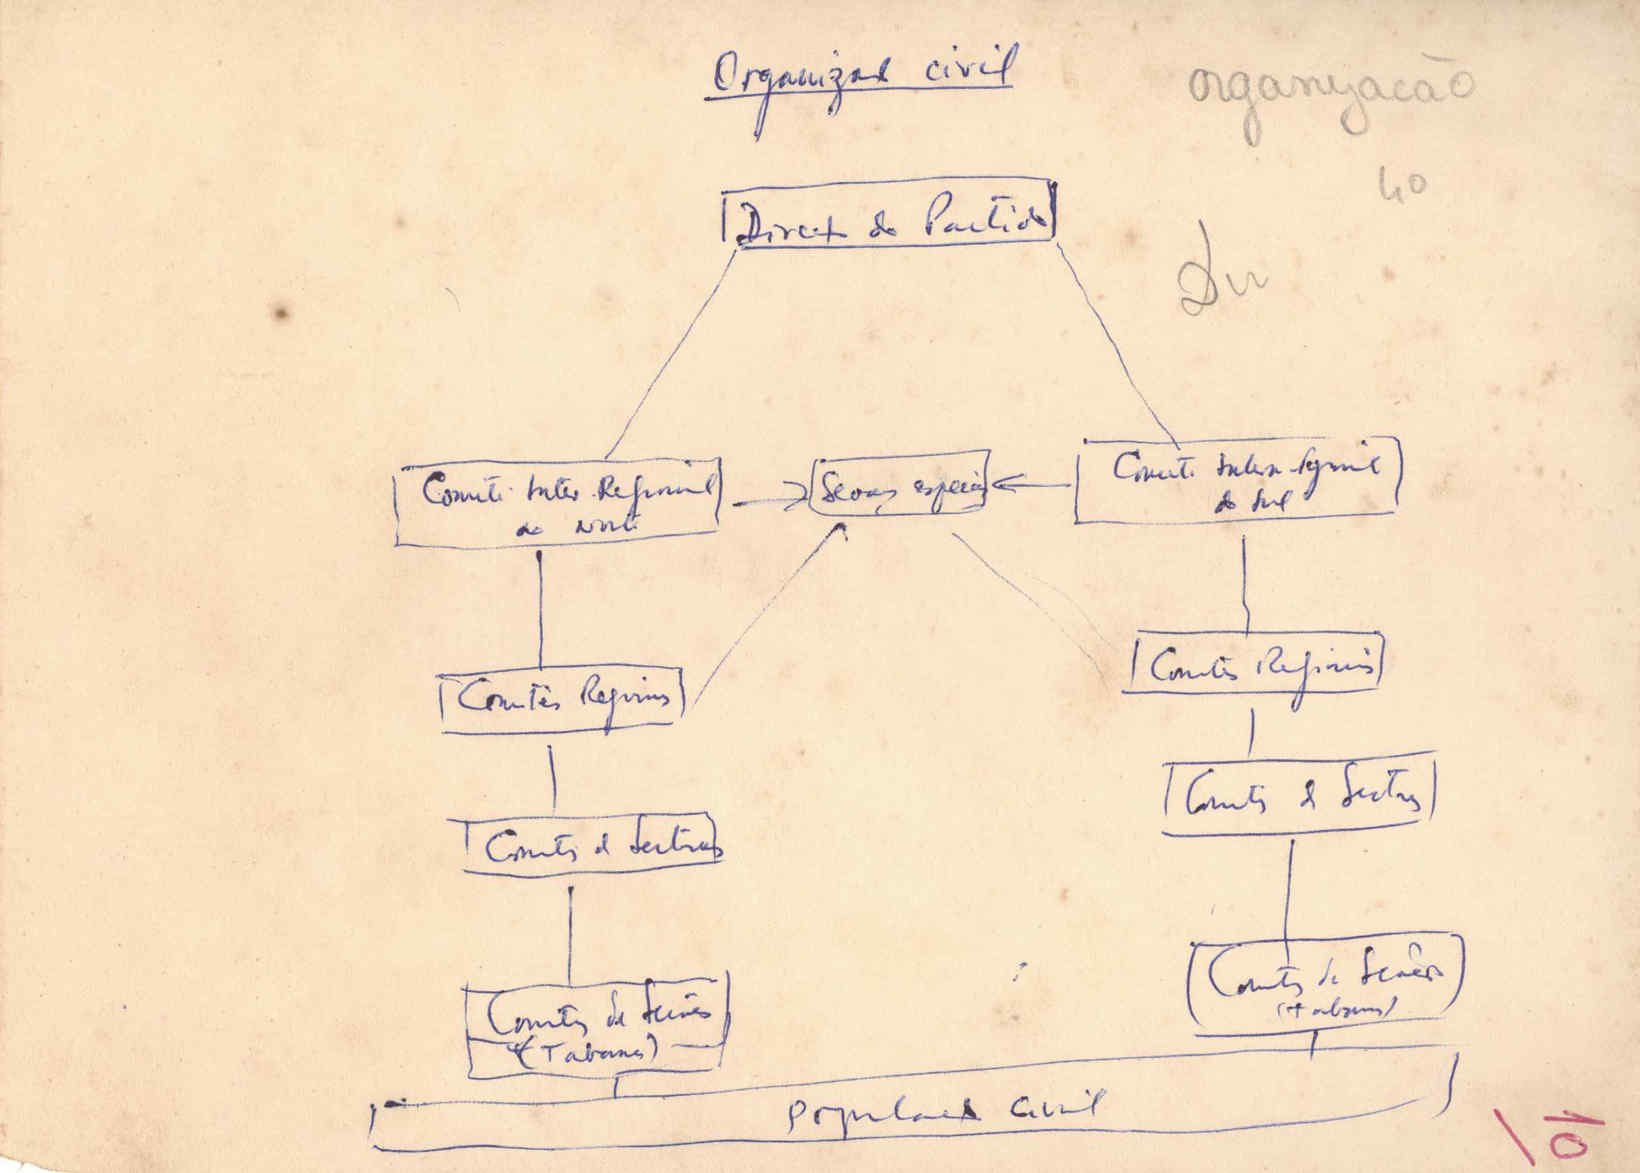 Organizaç civil
organização
40
Direcç do Partido
Comité Inter-Regional
do Norte
Secções especiais
Comité Inter-Regional
do Sul
Comités Regionais
Comités Regionais
Comités de Sectores
Comités de Sectores
Comités de Secções
(Tabancas)
Comités de Secções
(Tabancas)
População Civil
10